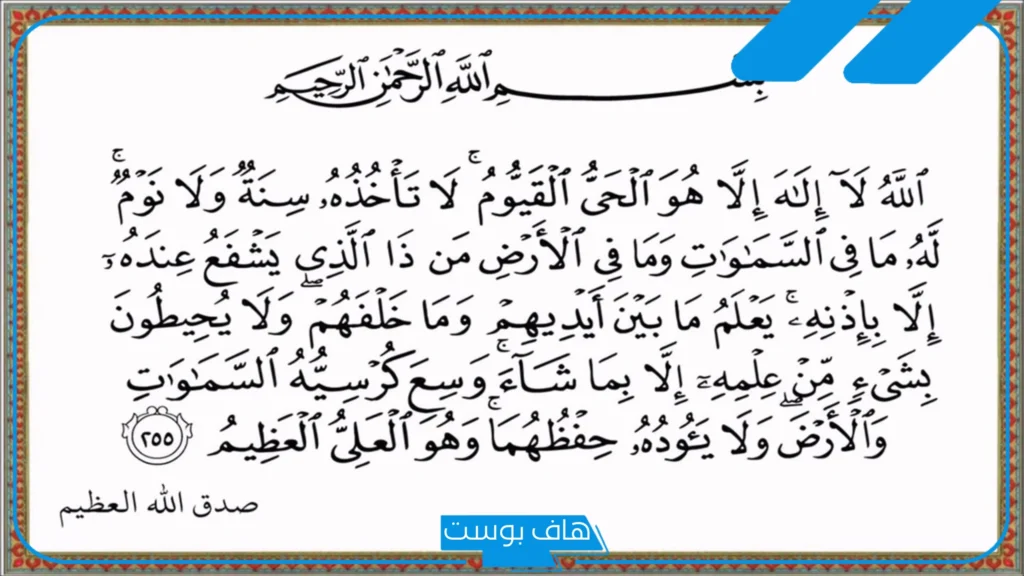 بِسْمِ ٱللَّهِ ٱلرَّحْمَٰنِ ٱلرَّحِيمِ
ٱللَّهُ لَآ إِلَٰهَ إِلَّا هُوَ ٱلْحَىُّ ٱلْقَيُّومُ ۚ لَا تَأْخُذُهُۥ سِنَةٌ وَلَا نَوْمٌ ۚ
لَّهُۥ مَا فِى ٱلسَّمَٰوَٰتِ وَمَا فِى ٱلْأَرْضِ ۗ مَن ذَا ٱلَّذِى يَشْفَعُ عِندَهُۥٓ
إِلَّا بِإِذْنِهِۦ ۚ يَعْلَمُ مَا بَيْنَ أَيْدِيهِمْ وَمَا خَلْفَهُمْ ۖ وَلَا يُحِيطُونَ
بِشَىْءٍ مِّنْ عِلْمِهِۦٓ إِلَّا بِمَا شَآءَ ۚ وَسِعَ كُرْسِيُّهُ ٱلسَّمَٰوَٰتِ
وَٱلْأَرْضَ ۖ وَلَا يَـُٔودُهُۥ حِفْظُهُمَا ۚ وَهُوَ ٱلْعَلِىُّ ٱلْعَظِيمُ ٢٥٥
صدق الله العظيم
هاف بوست